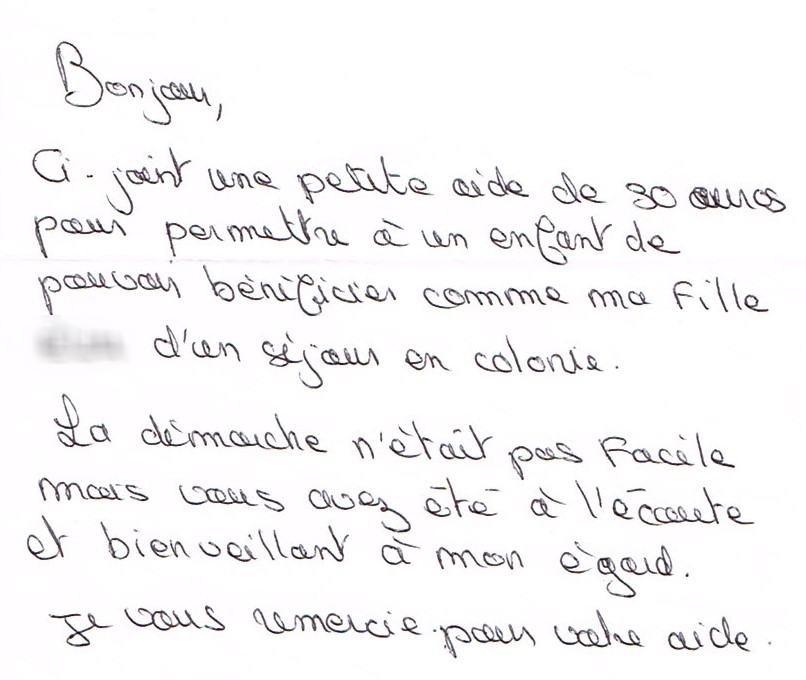 Bonjour,
Ci-joint une petite aide de 30 euros
pour permettre à un enfant de
pouvoir bénificier comme ma fille
d'un séjour en colonie.
La démarche n'était pas facile
mais vous avez été à l'écoute
et bienveillant à mon égard.
Je vous remercie pour votre aide.